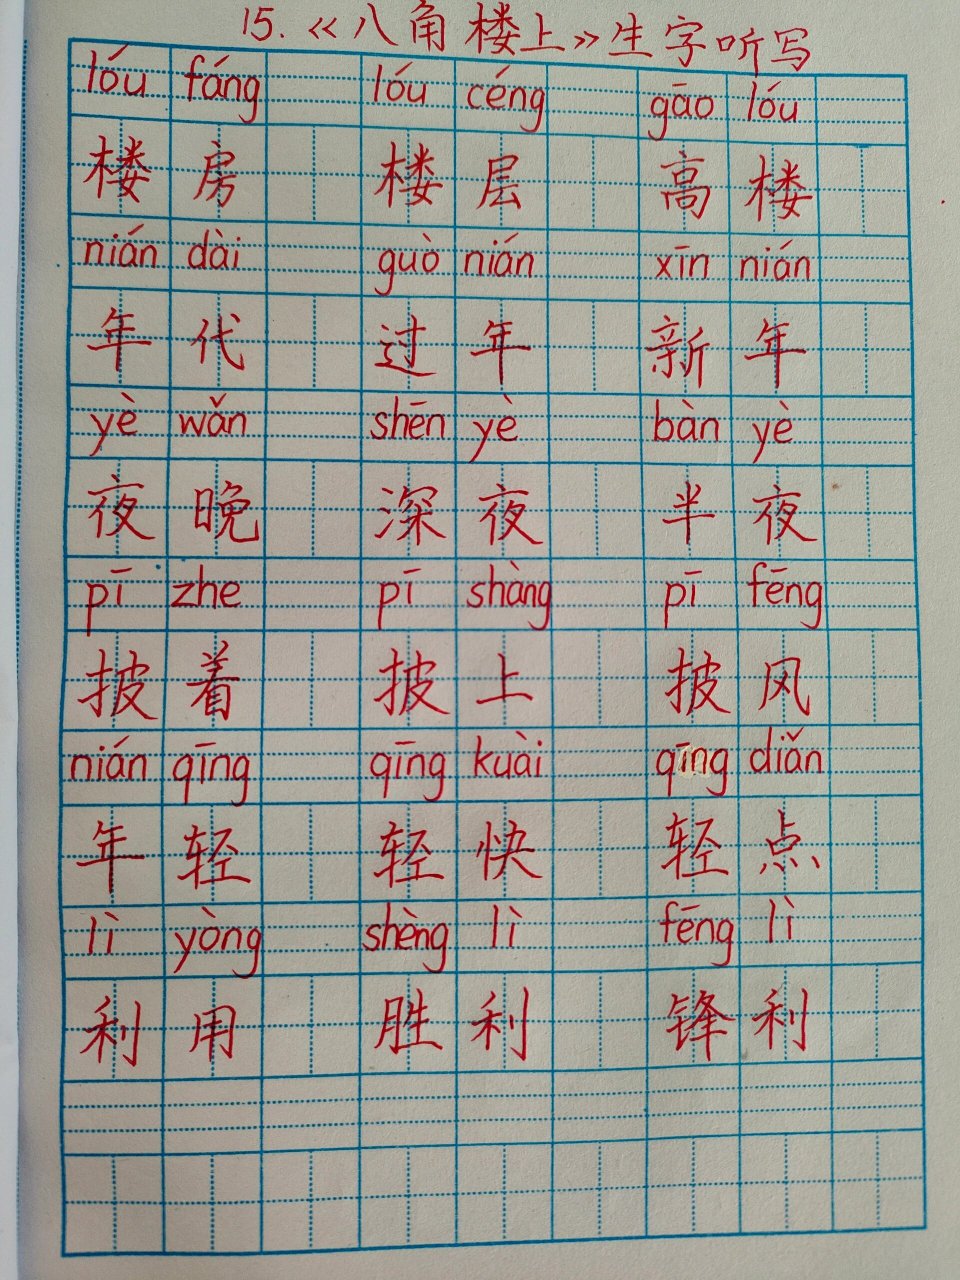 15.《八角楼上》生字听写
lóu fáng lóu céng gāo lóu
楼房 楼层 高楼
nián dài guò nián xīn nián
年代 过年 新年
yè wǎn shēn yè bàn yè
夜晚 深夜 半夜
pī zhe pī shàng pī fēng
披着 披上 披风
nián qīng qīng kuài qīng diǎn
年轻 轻快 轻点
lì yòng shèng lì fēng lì
利用 胜利 锋利